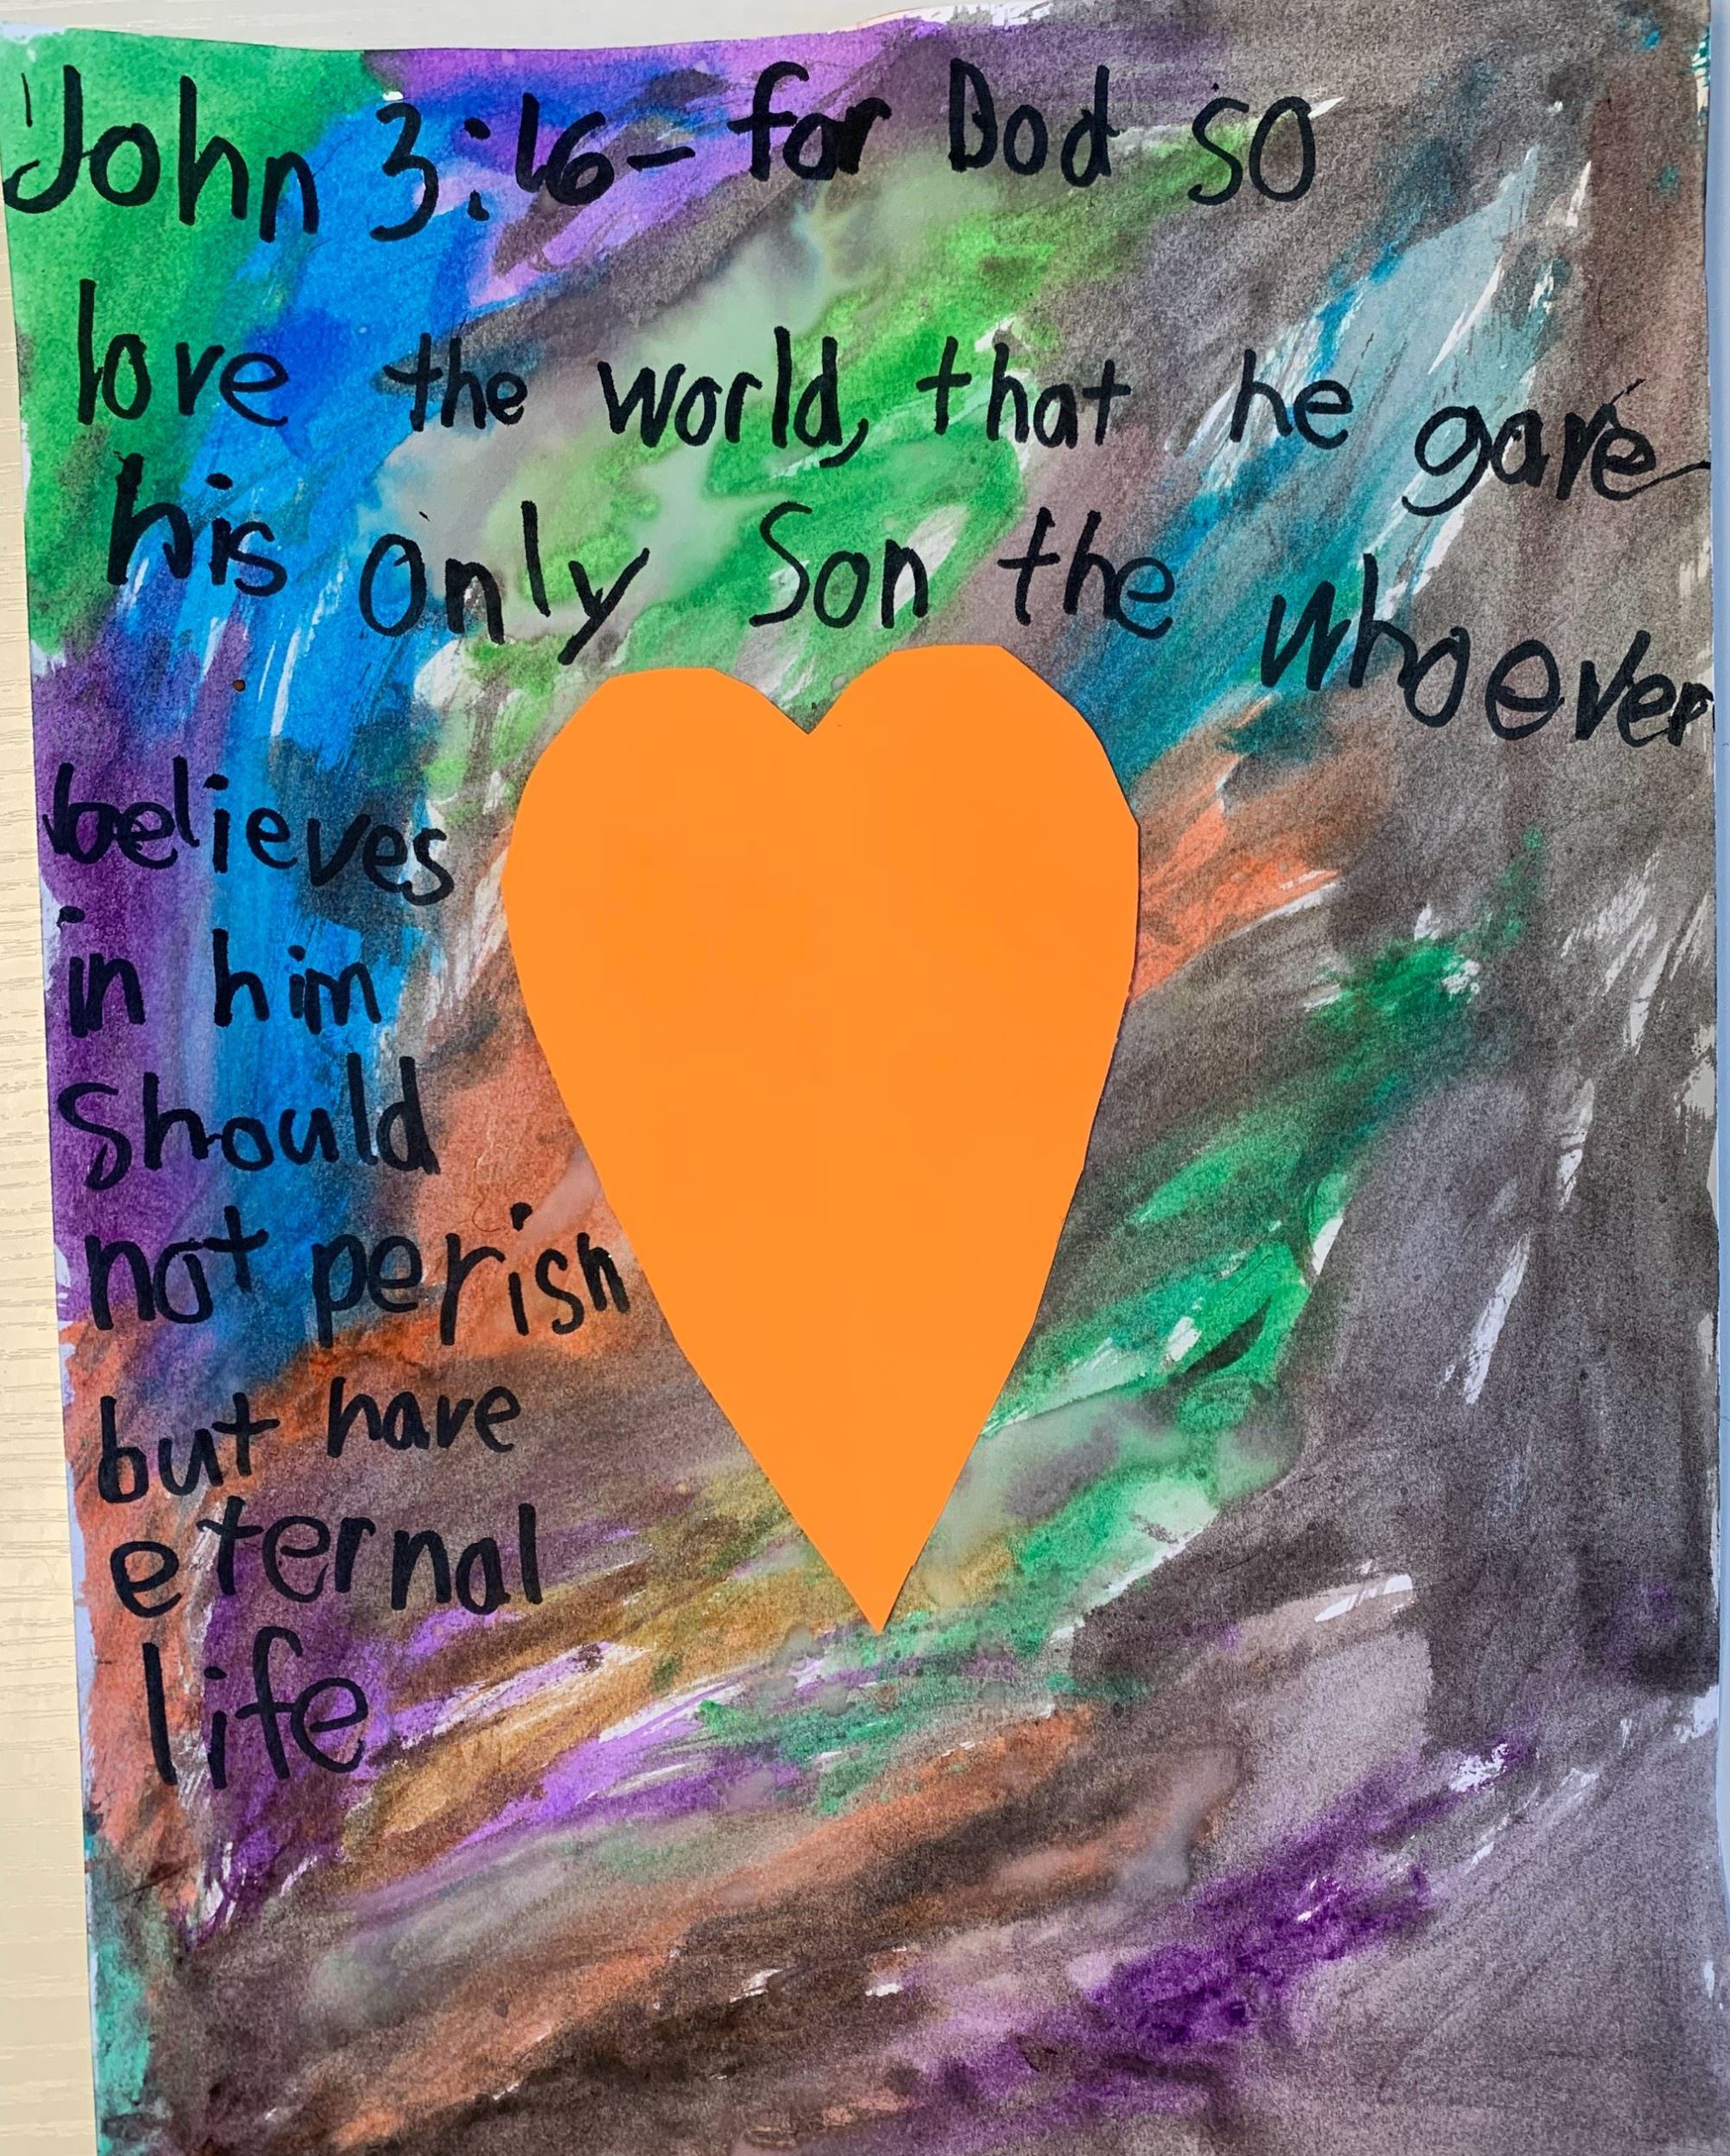 John 3:16- for Dod so
love the world, that he gave
his only Son the whoever
believes
in him
Should
not perish
but have
eternal
life